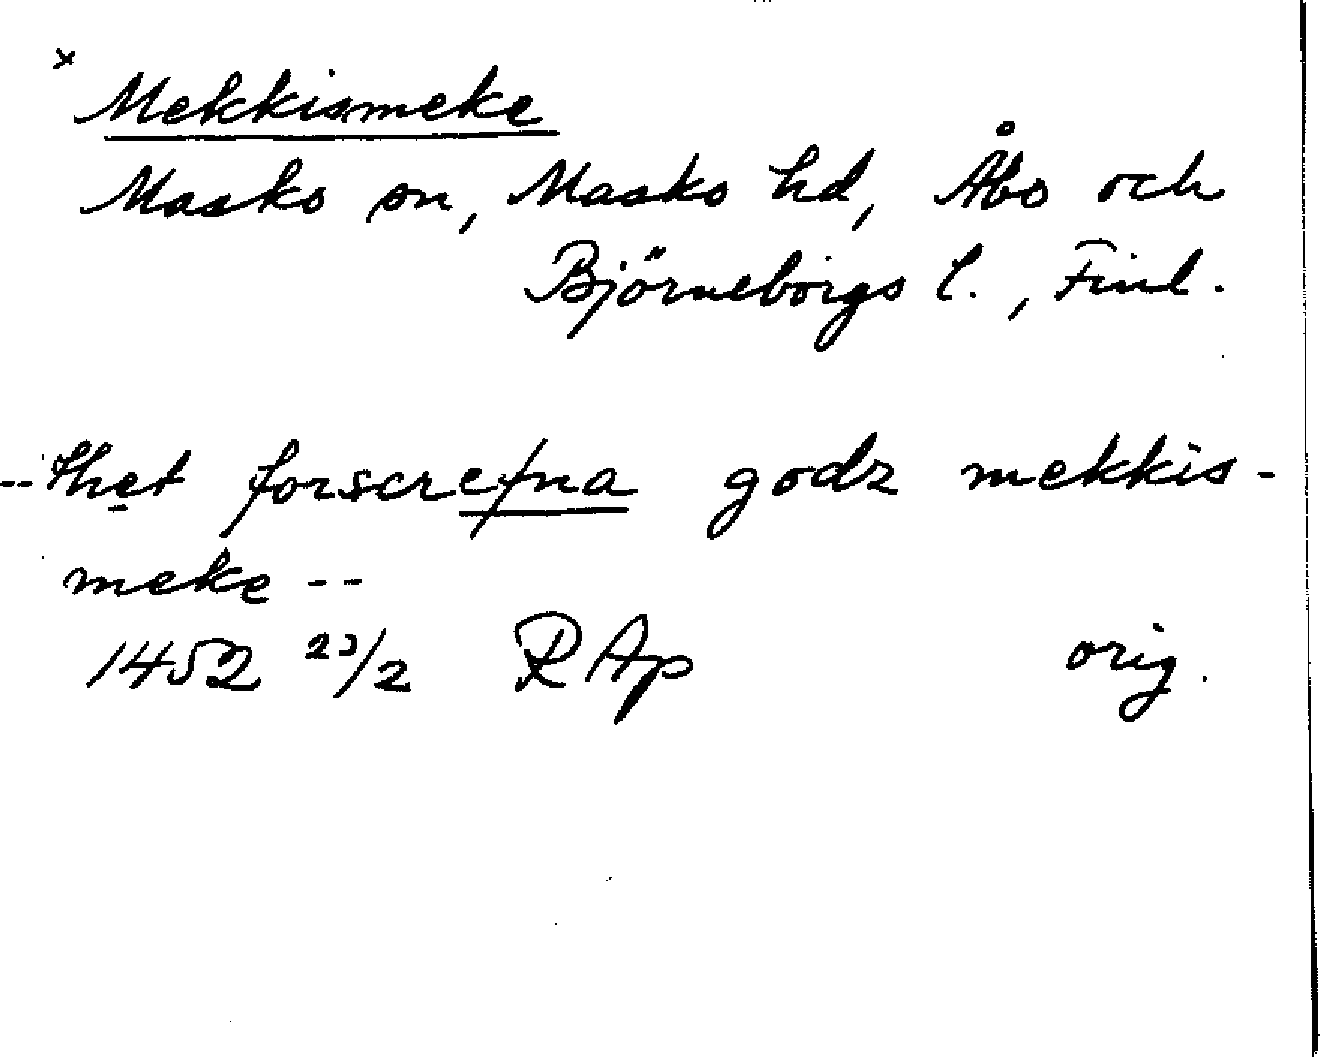 x
Mekkismeke
Masko sn, Masko hd, Åbo och
Björneborgs l., Finl.
-- thet forscrefna godz mekkis-
meke --
1452 23/2 RAp orig.